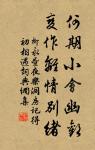 何期小會幽歡
變作離情別緒
柳永晝夜樂洞房記得
初相遇詞典網集